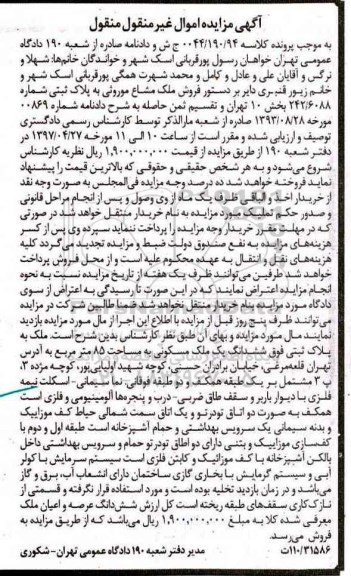 آگهی مزایده اموال غیر منقول منقول
به موجب پرونده کلاسه ۰۰۴۴/۱۹۰/۹۴ ج ش و دادنامه صادره از شعبه ۱۹۰ دادگاه
عمومی تهران خواهان رسول پورقربانی اسک شهر و خواندگان خانم‌ها: شهلا و
نرگس و آقایان علی و عادل و کامل و محمد شهرت همگی پورقربانی اسک شهر و
خانم زیور قنبری دایر بر دستور فروش ملک مشاع موروثی به پلاک ثبتی شماره
۲۴۲/۶۰۸۸ بخش ۱۰ تهران و تقسیم ثمن حاصله به شرح دادنامه شماره ۰۰۸۶۹
مورخه ۱۳۹۳/۰۸/۲۸ صادره از شعبه مارالذکر توسط کارشناس رسمی دادگستری
توصیف و ارزیابی شده و مقرر است از ساعت ۱۰ الی ۱۱ مورخه ۱۳۹۷/۰۴/۲۷ در
دفتر شعبه ۱۹۰ از طریق مزایده از قیمت ۱,۹۰۰,۰۰۰,۰۰۰ ریال نظریه کارشناس
شروع می‌شود و به هر شخص حقیقی و حقوقی که بالاترین قیمت را پیشنهاد
نماید فروخته خواهد شد ده درصد وجه مزایده فی‌المجلس به صورت وجه نقد
از خریدار اخذ و الباقی ظرف یک ماه از وی وصول و پس از انجام مراحل قانونی
و صدور حکم تملیک مورد مزایده به نام خریدار منتقل خواهد شد در صورتی
که در مهلت مقرر خریدار وجه مزایده را پرداخت ننماید سپرده وی پس از کسر
هزینه‌های مزایده به نفع صندوق دولت ضبط و مزایده تجدید می‌گردد کلیه
هزینه‌های نقل و انتقال به عهده محکوم علیه است و از محل فروش پرداخت
خواهد شد طرفین می‌توانند ظرف یک هفته از تاریخ مزایده نسبت به نحوه
انجام مزایده اعتراض نمایند که در این صورت تا رسیدگی به اعتراض از سوی
دادگاه مورد مزایده بنام خریدار منتقل نخواهد شد ضمنا طالبین شرکت در مزایده
می‌توانند ظرف پنج روز قبل از مزایده با اطلاع این اجرا از مال مورد مزایده بازدید
نمایند مال مورد مزایده و بهای آن طبق نظر کارشناس بدین شرح است. ملک به
پلاک ثبتی فوق ششدانگ یک ملک مسکونی به مساحت ۸۵ متر مربع به آدرس
تهران قلعه‌مرغی، خیابان برادران حسنی، کوچه شهید اولیایی‌پور، کوچه مژده ۳،
پ ۳ مشتمل بر یک طبقه همکف و دو طبقه فوقانی، نما سیمانی - اسکلت نیمه
فلزی با دیوار باربر و سقف طاق ضربی - درب و پنجره‌ها آلومینیومی و فلزی است
همکف به صورت دو اتاق تودرتو و یک اتاق سمت شمالی حیاط کف موزاییک
و بدنه سیمانی یک سرویس بهداشتی و حمام آشپزخانه است طبقه اول و دوم با
کف‌سازی موزاییک و بتنی دارای دو اطاق تودرتو حمام و سرویس بهداشتی داخل
بالکن آشپزخانه با کف موزائیک و کابنت فلزی است سیستم سرمایش با کولر
آبی و سیستم گرمایش با بخاری گازی ساختمان دارای انشعاب آب، برق و گاز
می‌باشد و در زمان بازدید تخلیه بوده است و مورد استفاده قرار نگرفته و قسمتی از
نازک‌کاری سقف‌های طبقه ریخته است کل ارزش شش‌دانگ عرصه و اعیان ملک
معرفی شده کلا به مبلغ ۱,۹۰۰,۰۰۰,۰۰۰ ریال می‌باشد که از طریق مزایده به
فروش می‌رسد.
۱۱۰/۳۱۵۸۶ت مدیر دفتر شعبه ۱۹۰ دادگاه عمومی تهران - شکوری